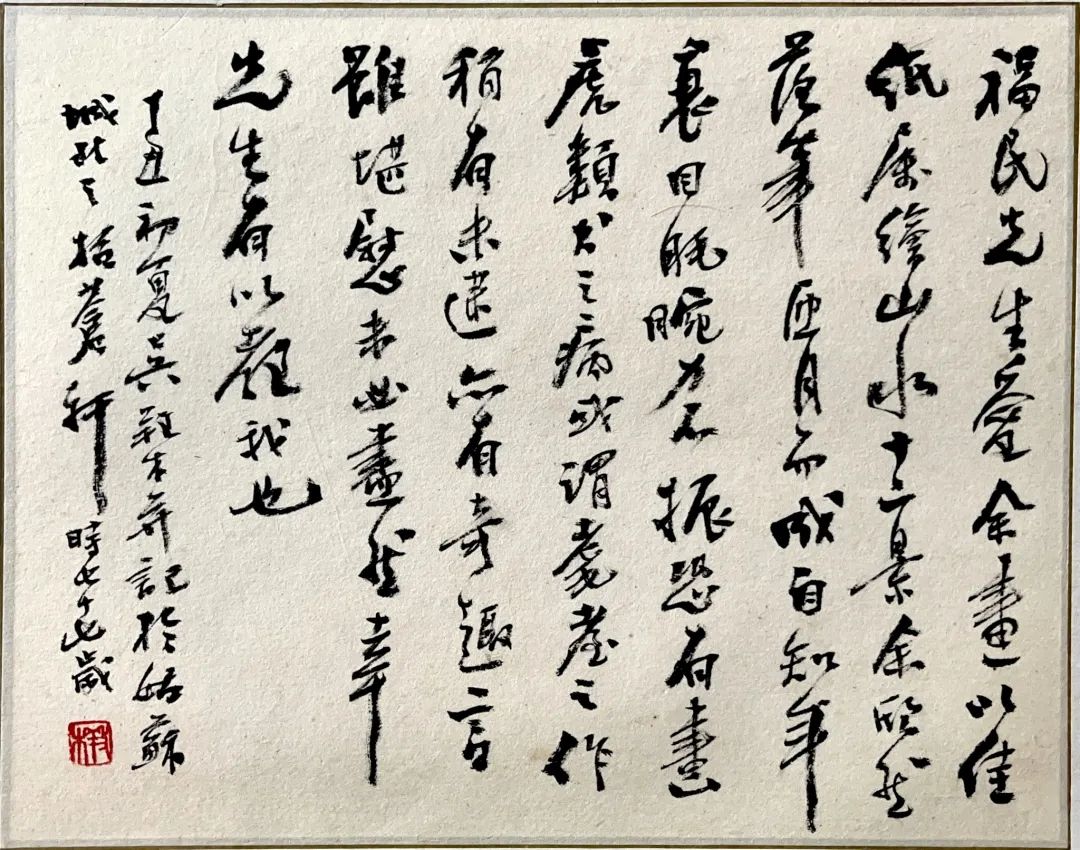 福民先生愛余畫以佳
紙属繪山水十二景余欣然
落筆匝月而成自知年
衰目眊腕力不振恐有畫
虎類犬之病或謂耄耋之作
稍有未逮亦有奇趣言
雖堪慰未必盡然幸
先生有以教我也
丁丑初夏吳羖木并記於姑蘇
城北之蒼軒時七十七歲